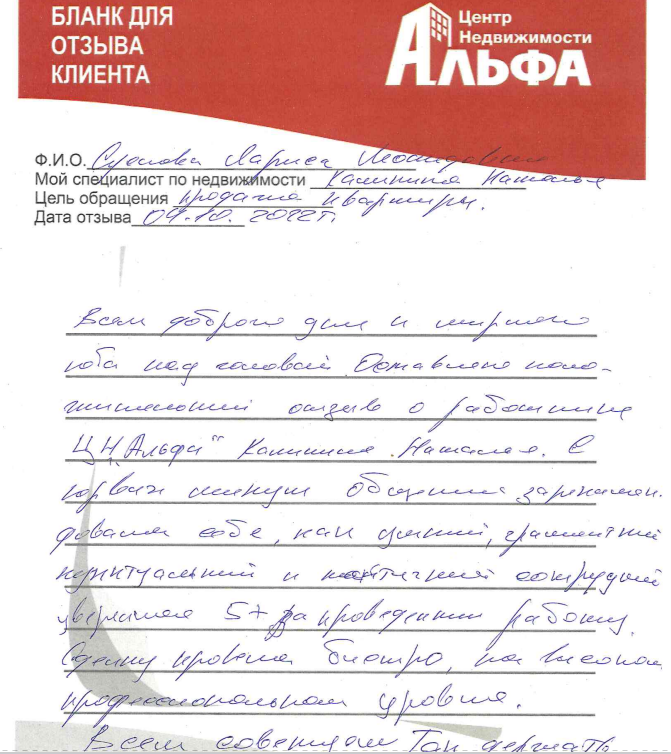 БЛАНК ДЛЯ
ОТЗЫВА
КЛИЕНТА
Центр
Недвижимости
АЛЬФА
Ф.И.О. Лариса Леонидовна
Мой специалист по недвижимости Калинина Наталья
Цель обращения продажа квартиры.
Дата отзыва 04.10. 2022г.
Всем доброго дня и мирного
неба над головой. Оставляю поло-
жительный отзыв о работнике
ЦН „Альфа" Калинина Наталья. С
первых минут общения зарекомен
довала себя, как умный, грамотный
пунктуальный и тактичный сотрудник
5+ за проведенную работу.
Сделку провела быстро, на высоком
профессиональном уровне.
Всем советуем Так держать